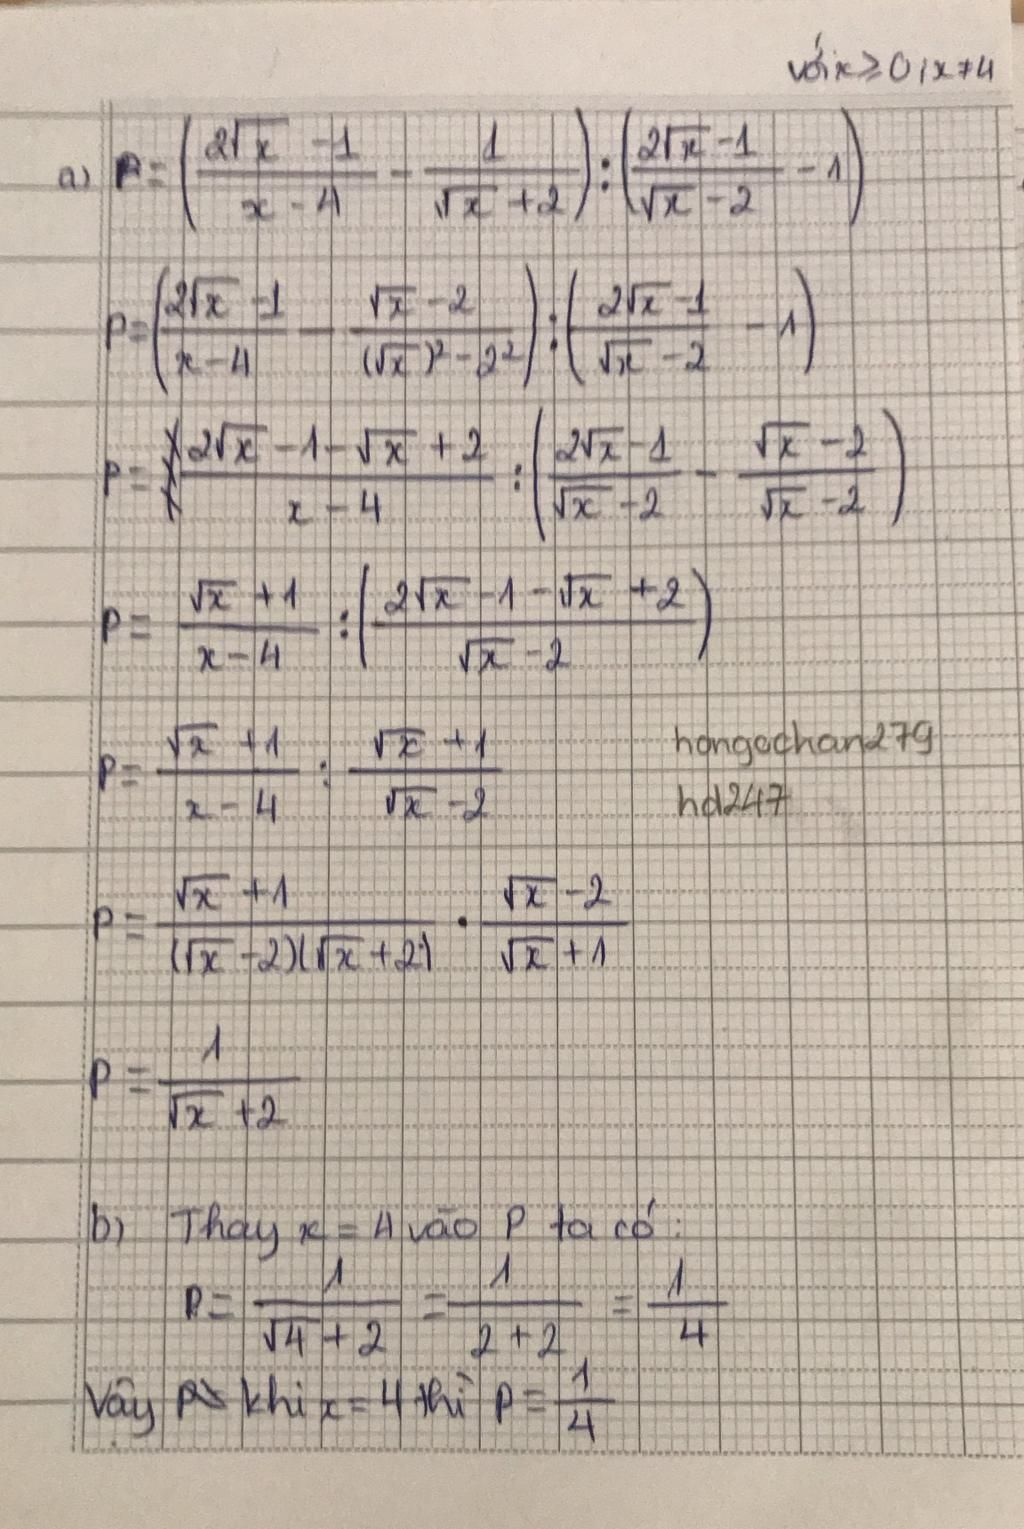 với x ≥ 0 ; x ≠ 4
a) P = ( (2√x - 1)/(x - 4) - 1/(√x + 2) ) : ( (2√x - 1)/(√x - 2) - 1 )
P = ( (2√x - 1)/(x - 4) - (√x - 2)/((√x)² - 2²) ) : ( (2√x - 1)/(√x - 2) - 1 )
P = (2√x - 1 - √x + 2)/(x - 4) : ( (2√x - 1)/(√x - 2) - (√x - 2)/(√x - 2) )
P = (√x + 1)/(x - 4) : ( (2√x - 1 - √x + 2)/(√x - 2) )
P = (√x + 1)/(x - 4) : (√x + 1)/(√x - 2)
hongochan279
hd247
P = (√x + 1)/((√x - 2)(√x + 2)) . (√x - 2)/(√x + 1)
P = 1/(√x + 2)
b) Thay x = 4 vào P ta có:
P = 1/(√4 + 2) = 1/(2 + 2) = 1/4
Vậy P khi x = 4 thì P = 1/4